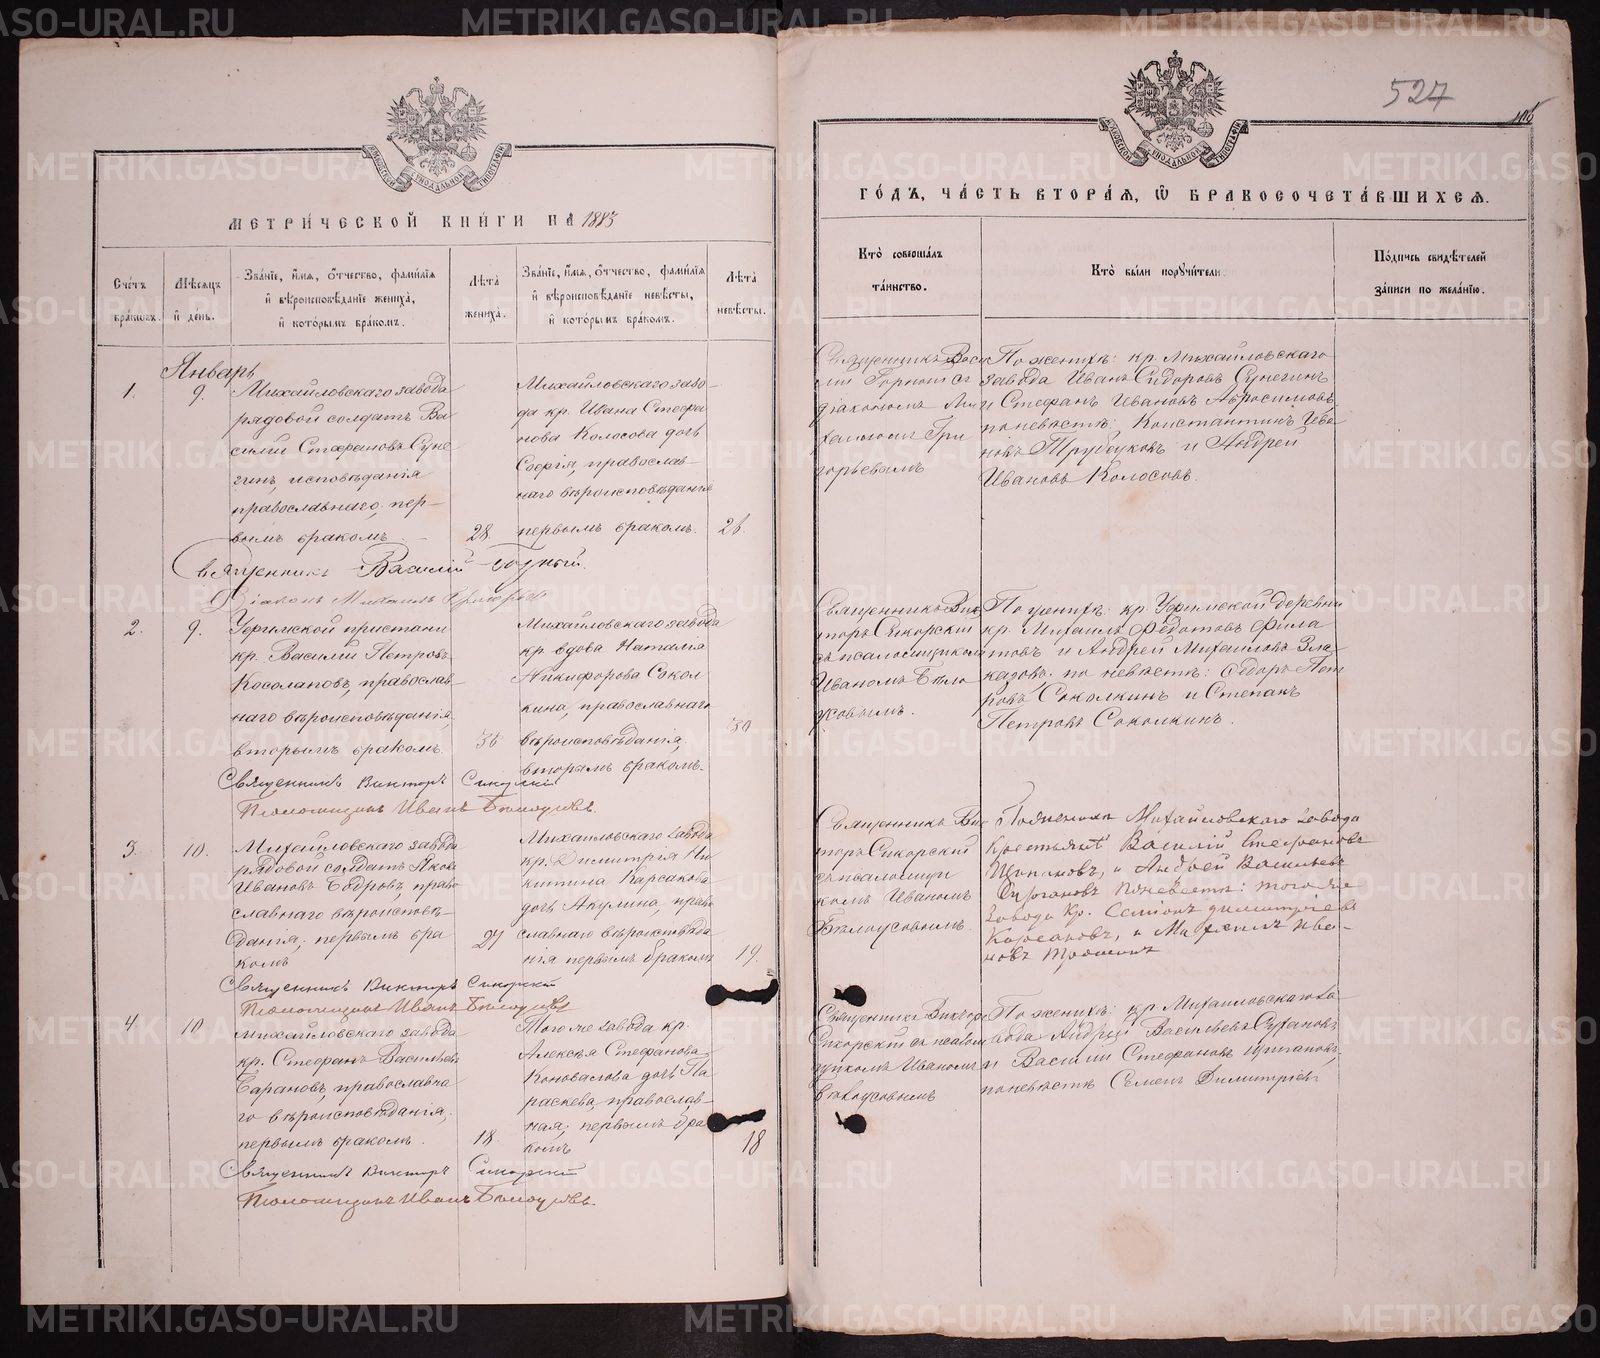 МЕТРИ́ЧЕСКОЙ КНИ́ГИ НА 1883
Сче́тъ бра́ковъ.
Мѣ́сяцъ и҆ де́нь.
Зва́нїе, и҆́мѧ, ѻ҆́тчество, фами́лїѧ
и҆ вѣроисповѣ́данїе жениха̀,
и҆ кото́рымъ бра́комъ.
Лѣ́та
жениха̀.
Зва́нїе, и҆́мѧ, ѻ҆́тчество, фами́лїѧ
и҆ вѣроисповѣ́данїе невѣ́сты,
и҆ кото́рымъ бра́комъ.
Лѣ́та
невѣ́сты.
Январь
1.
9.
Михайловскаго завода
рядовой солдатъ Ва-
силий Стефановъ Суне-
гинъ, исповѣданія
православнаго, пер-
вымъ бракомъ.
28
Михайловскаго заво-
да кр. Ивана Стефа-
нова Колосова дочь
Софія, православ-
наго вѣроисповѣданія
первымъ бракомъ.
Священникъ Василій
Діаконъ Михаилъ Григорьевъ
2.
9.
Уфимской пристани
кр. Василій Петровъ
Косолаповъ, православ-
наго вѣроисповѣданія,
вторымъ бракомъ.
Михайловскаго завода
кр. вдова Наталія
Никифорова Сокол
кина, православнаго
вѣроисповѣданія,
вторымъ бракомъ.
30
Священникъ Викторъ Сикорскій
Псаломщикъ Иванъ Бѣлоусовъ.
3.
10.
Михайловскаго завода
рядовой солдатъ Яковъ
Ивановъ Бодровъ, право
славнаго вѣроисповѣ-
данія, первымъ бра
комъ
27
Михайловскаго завода
кр. Димитрія Ни
китина Карсакова
дочь Акулина, право
славнаго вѣроисповѣда
нія первымъ бракомъ
19.
Священникъ Викторъ Сикорскій
Псаломщикъ Иванъ Бѣлоусовъ
4
10
Михайловскаго завода
кр. Стефанъ Васильевъ
Барановъ, православна
го вѣроисповѣданія,
первымъ бракомъ.
18
Того же завода кр.
Алексѣя Стефанова
Коновалова дочь Па
раскева, православ-
ная, первымъ бра
комъ
18
Священникъ Викторъ Сикорскій
Псаломщикъ Иванъ Бѣлоусовъ.
527
ГО́ДЪ, ЧА́СТЬ ВТОРА́Я, Ѽ БРАКОСОЧЕТА́ВШИХСЯ.
Кто̀ соверша́лъ
та́инство.
Кто̀ бы́ли порꙋчи́тели.
По́дпись свидѣ́телей
за́писи по жела́нїю.
Священникъ Васи
лій съ
діакономъ Ми
хаиломъ Гри
горьевымъ
По женихѣ: кр. Михайловскаго
завода Иванъ Сидоровъ Сунегинъ
и Стефанъ Ивановъ Абросимовъ
по невѣстѣ: Константинъ Ива
новъ Трубуковъ и Андрей
Ивановъ Колосовъ.
Священникъ Вик
торъ Сикорскій
съ псаломщикомъ
Иваномъ Бѣло
усовымъ.
По женихѣ: кр. Уфимской деревни
кр. Михаилъ Федотовъ Фила
товъ и Андрей Михаиловъ Гла-
казовъ. по невѣстѣ: Федоръ Пет
ровъ Соколкинъ и Степанъ
Петровъ Соколкинъ.
Священникъ Вик
торъ Сикорскій
съ псаломщи
комъ Иваномъ
Бѣлоусовымъ.
По женихѣ Михайловскаго завода
Крестьяне Василій Стефановъ
и Андрей Васильевъ
по невѣстѣ: того же
завода кр. Семіонъ Димитріевъ
Корсаковъ, и Михаилъ Ива-
новъ
Священникъ Викторъ
Сикорскій съ псалом
щикомъ Иваномъ
Бѣлоусовымъ
По женихѣ: кр. Михайловскаго за
вода Андрей Васильевъ Сухановъ
и Василій Стефановъ
по невѣстѣ Семенъ Димитріевъ
METRIKI.GASO-URAL.RU